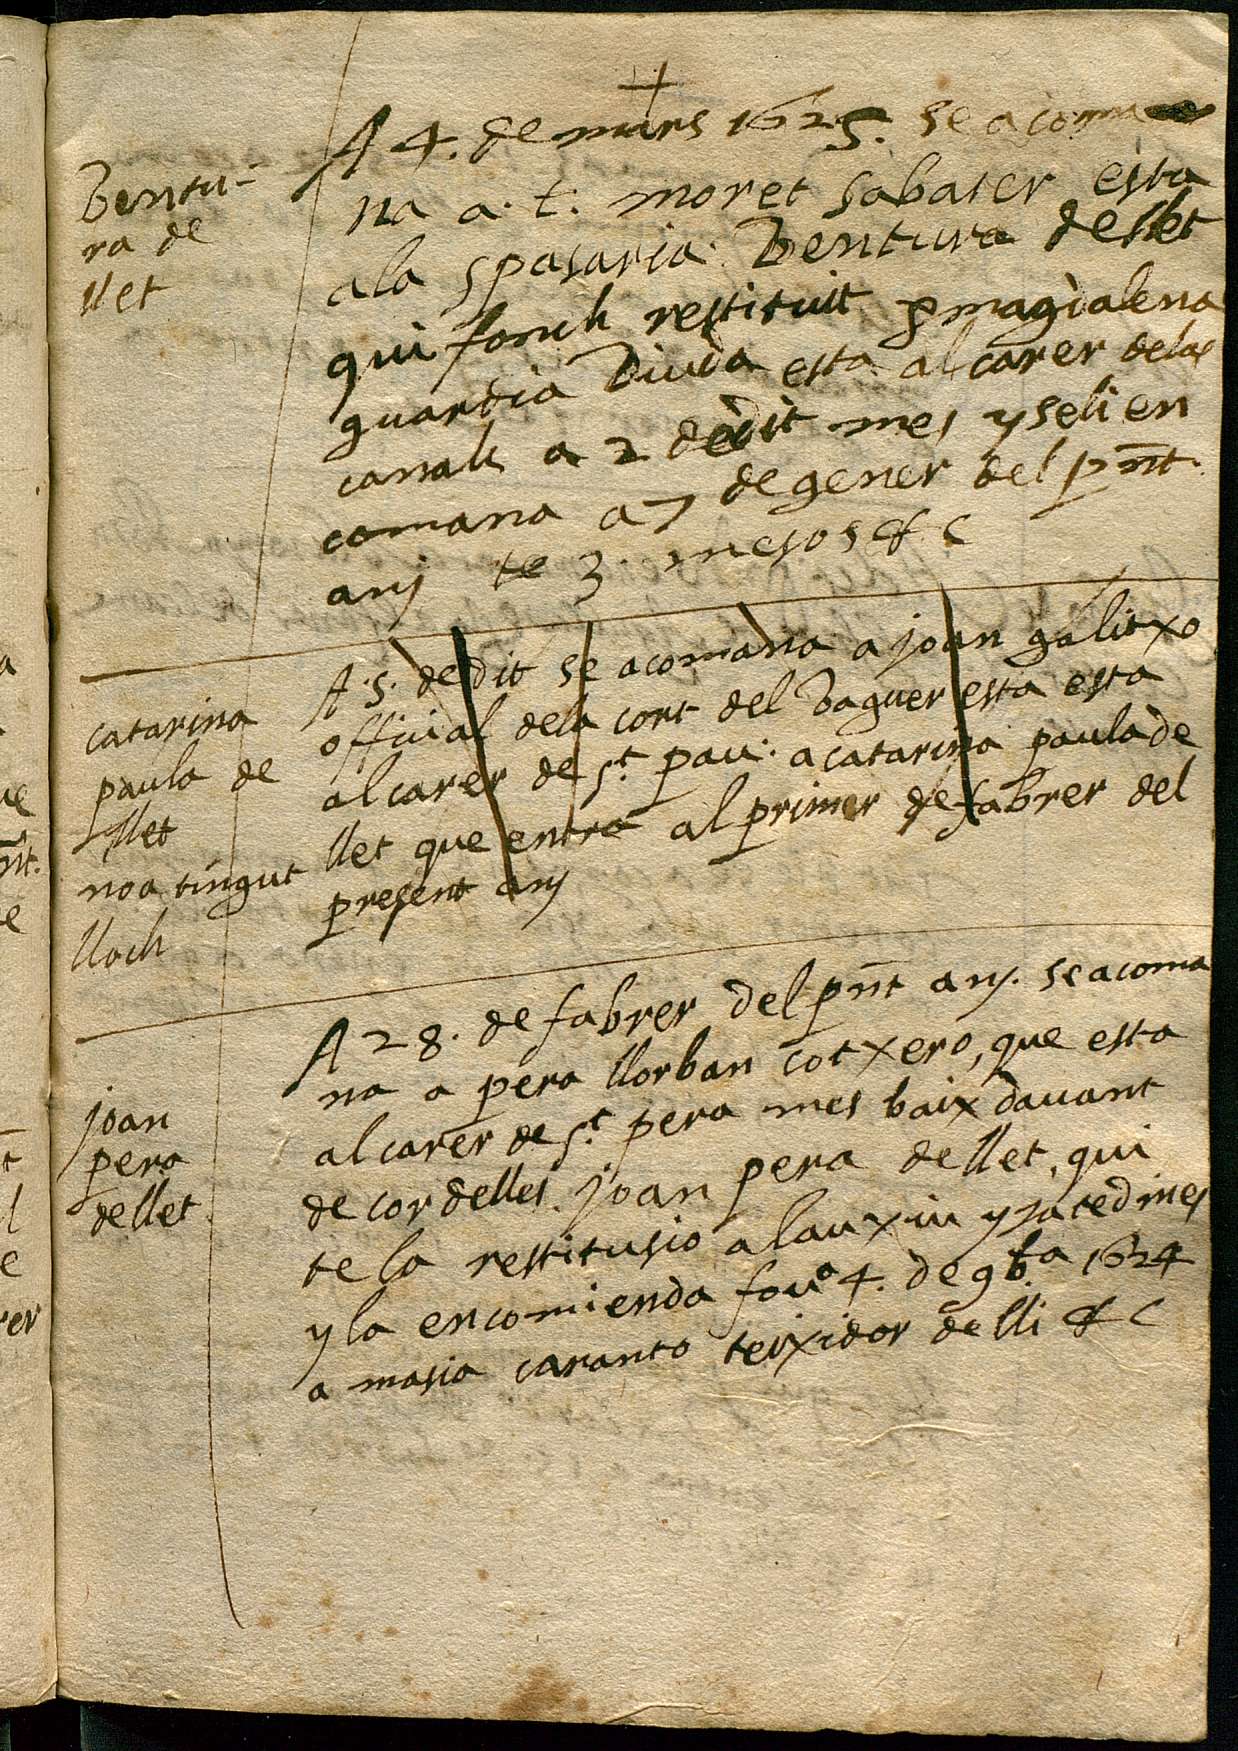 A 4. de mars 1625. se acoma
Bentu-
ra de
llet
na a. t. moret sabater esta
ala spasaria. Bentura de llet
qui fonch restituit p magdalena
guardia Viuda esta al carer delas
canals a 2 de dit mes y seli en
comana a 7 de gener del pnt.
anj te 3. mesos & c
catarina
paula de
llet
noa tingut
lloch
A. 5. de dit se acomana a joan galitxo
official dela cort del Baguer esta esta
al carer de st. pau. a catarina paula de
llet que entra al primer de fabrer del
present anj
joan
pera
de llet
A 28. de fabrer del pnt anj. se acoma
na a pera llorban cotxero, que esta
al carer de st. pera mes baix dauant
de cordelles. joan pera de llet, qui
te la restitusio a lauxiu y ja te d mes
y la encomienda fou a 4. de 9b.a 1624
a masia caranto teixidor de lli & c